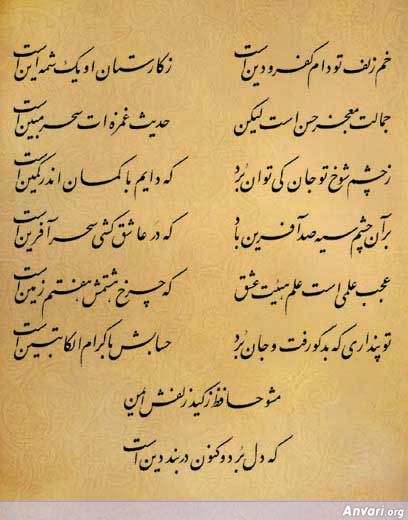 خم زلف تو دام کفر و دین است ز کارستان او یک شمه این است
جمالت معجز حسن است لیکن حدیث غمزه ات سحر مبین است
ز چشم شوخ تو جان کی توان برد که دایم با کمان اندر کمین است
بر آن چشم سیه صد آفرین باد که در عاشق کشی سحر آفرین است
عجب علمی است علم هیئت عشق که چرخ هشتمش هفتم زمین است
تو پنداری که بدگو رفت و جان برد حسابش با کرام الکاتبین است
مشو حافظ ز کید زلفش ایمن
که دل برد و کنون در بند دین است
Anvari.org